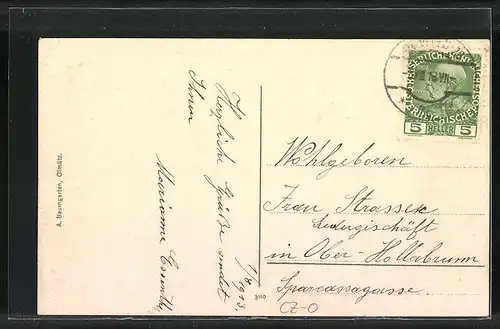 A. Baumgarten, Olmütz.
1/8 1913.
Herzliche Grüße sendet
Ihnen
Marianne
KAISERLICHE KÖNIGLICHE
ÖSTERREICHISCHE POST
5 HELLER 5
Wohlgeboren
Frau Strasser
in Ober-Hollabrunn
Sparcassagasse.
CZ-O